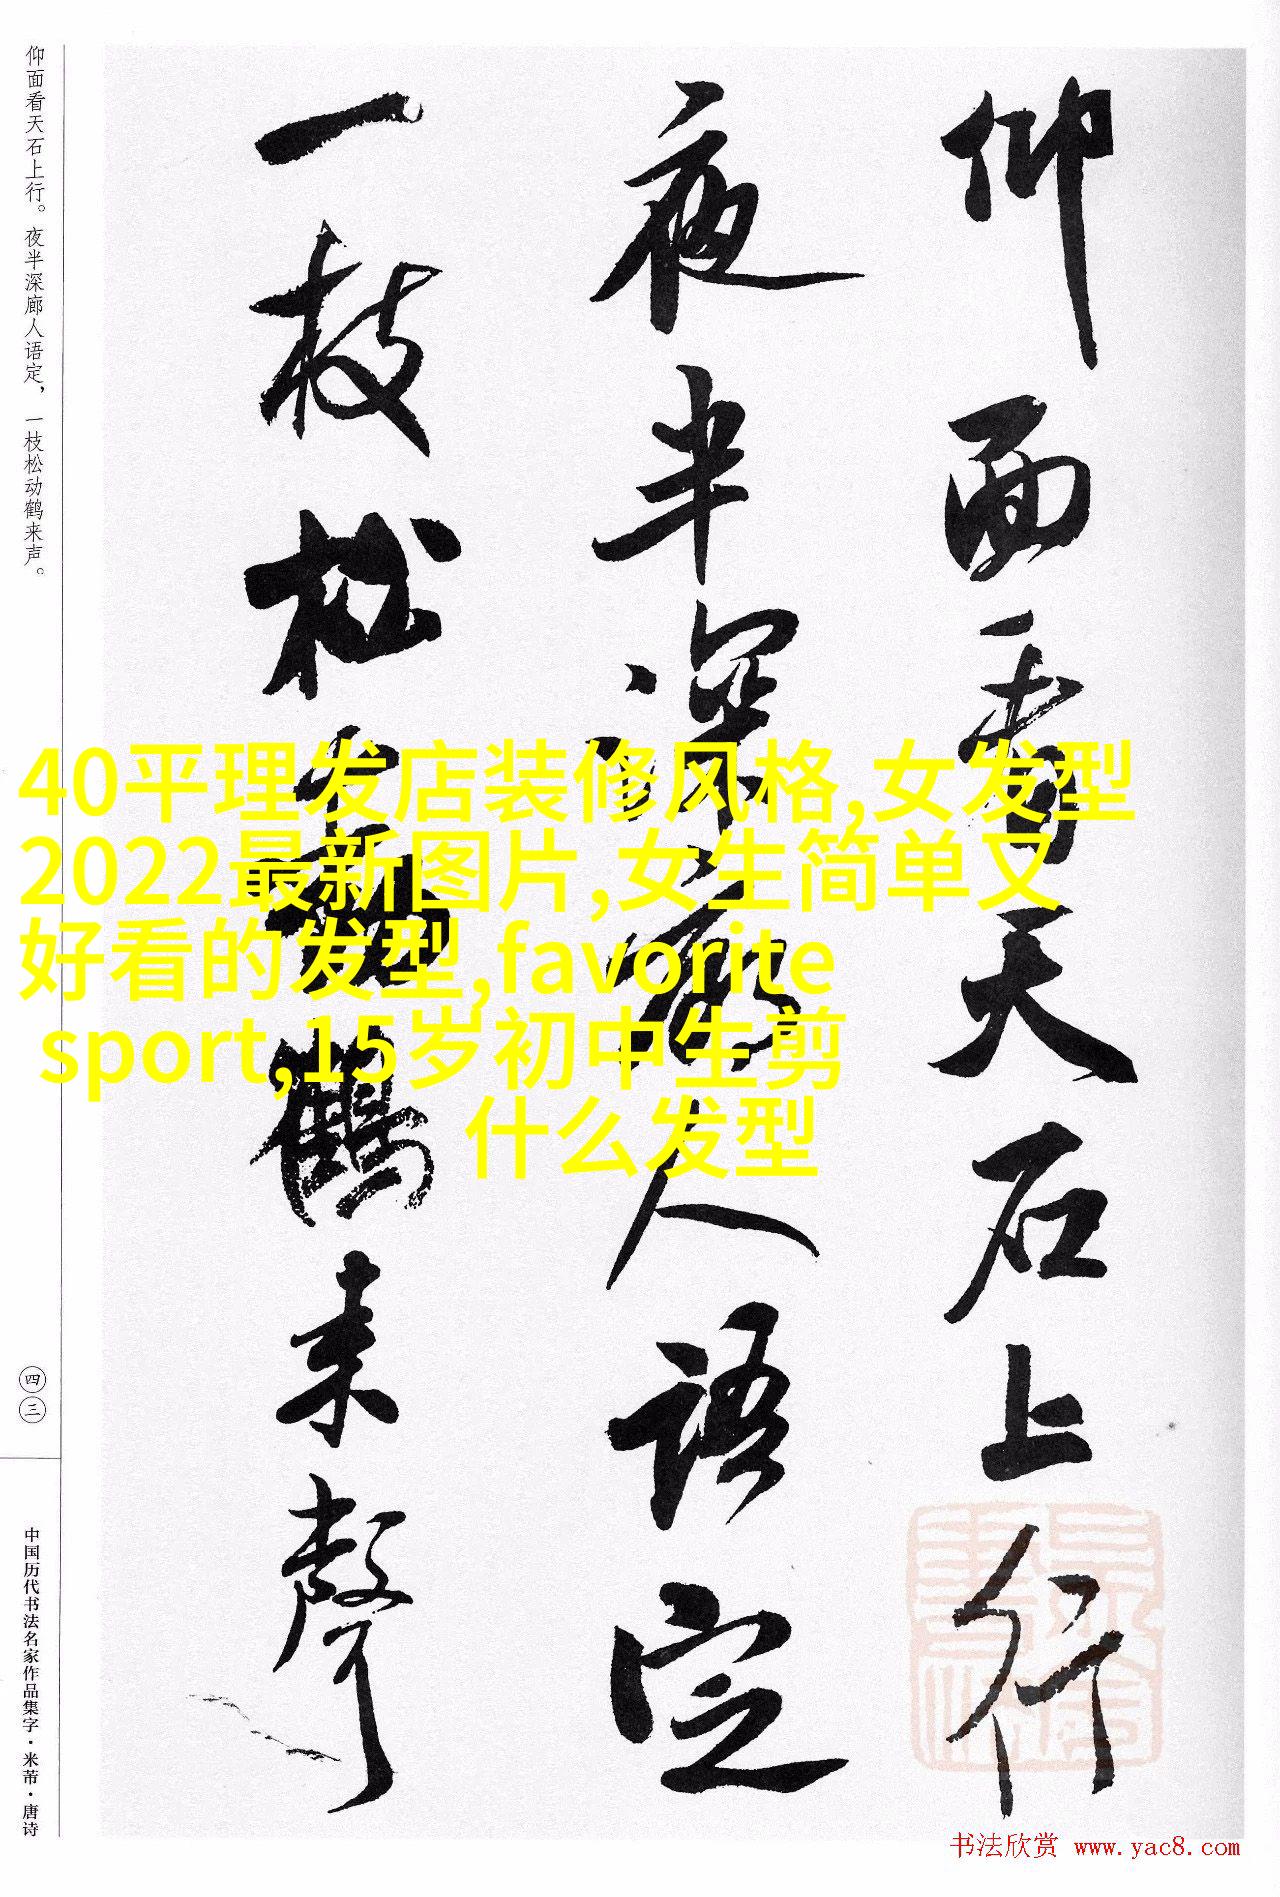 仰面看天石上行
夜半深廊人语定
一枝松动鹤来声
仰面看天石上行。夜半深廊人语定，一枝松动鹤来声。
四三
中国历代书法名家作品集字·米芾·唐诗
40平理发店装修风格,女发型
2022最新图片,女生简单又
好看的发型,favorite
sport,15岁初中生剪
什么发型
书法欣赏 www.yac8.com